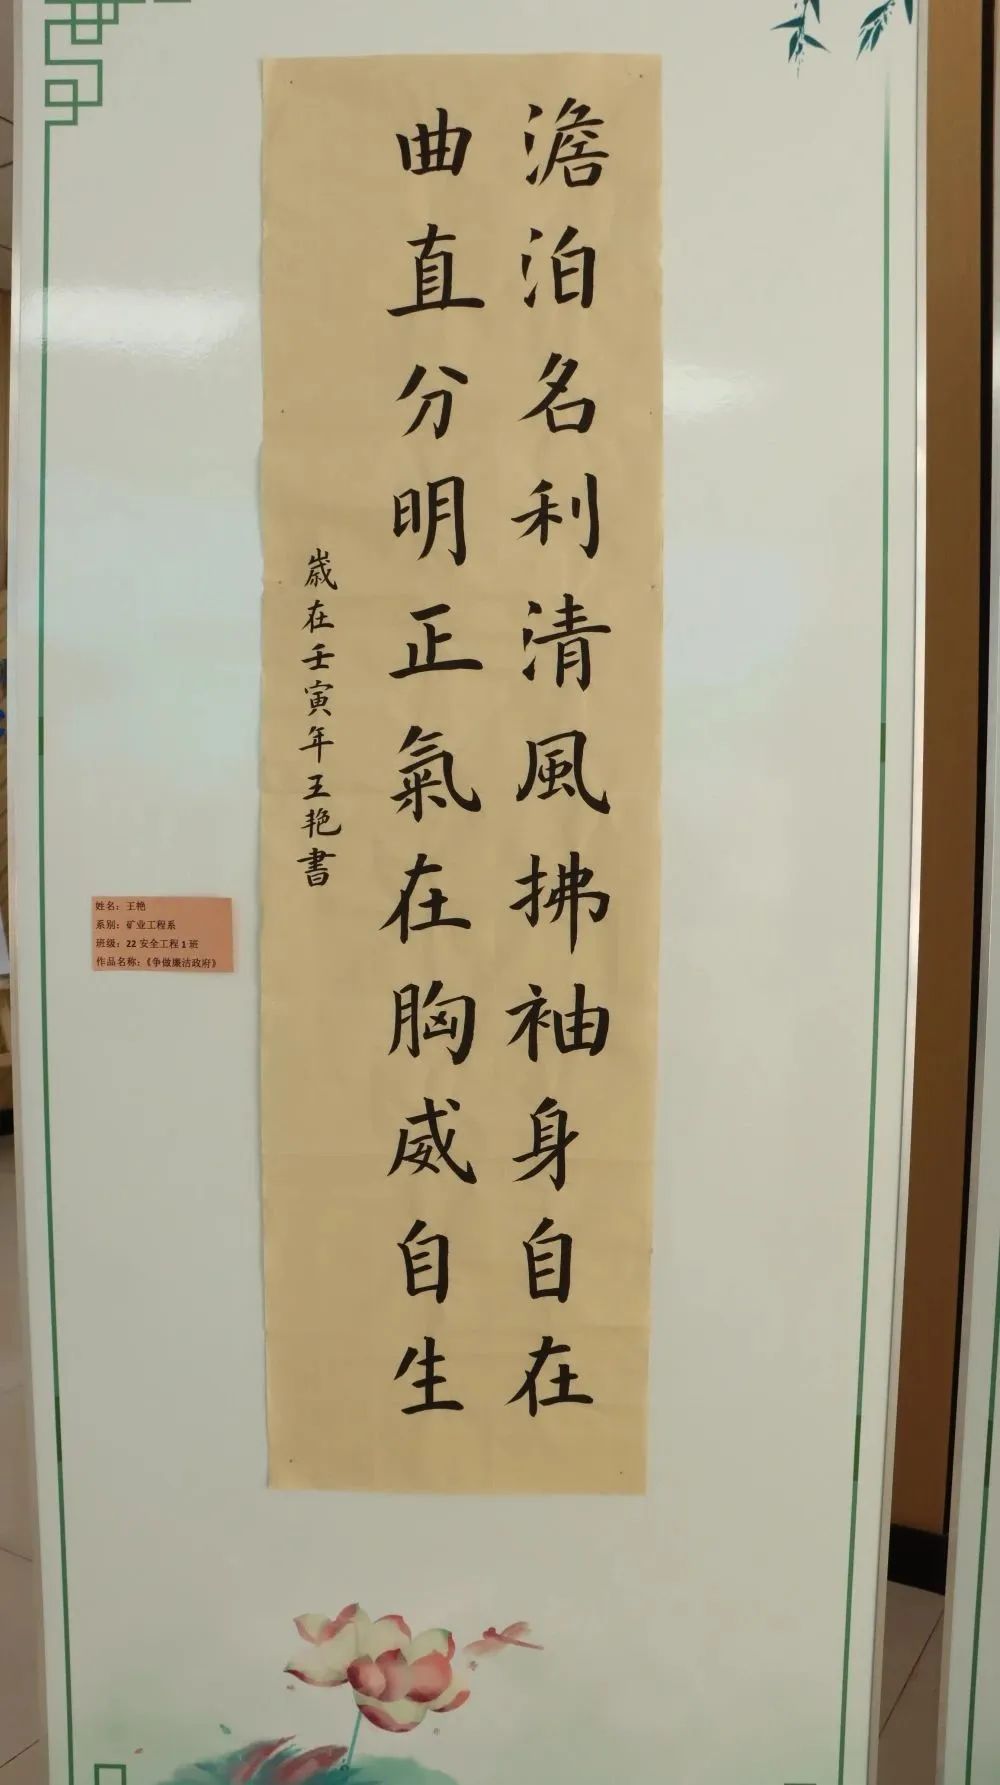 澹泊名利清風拂袖身自在
曲直分明正氣在胸威自生
歲在壬寅年王艳書
姓名：王艳
系别：矿业工程系
班级：22 安全工程 1 班
作品名称：《争做廉洁政府》